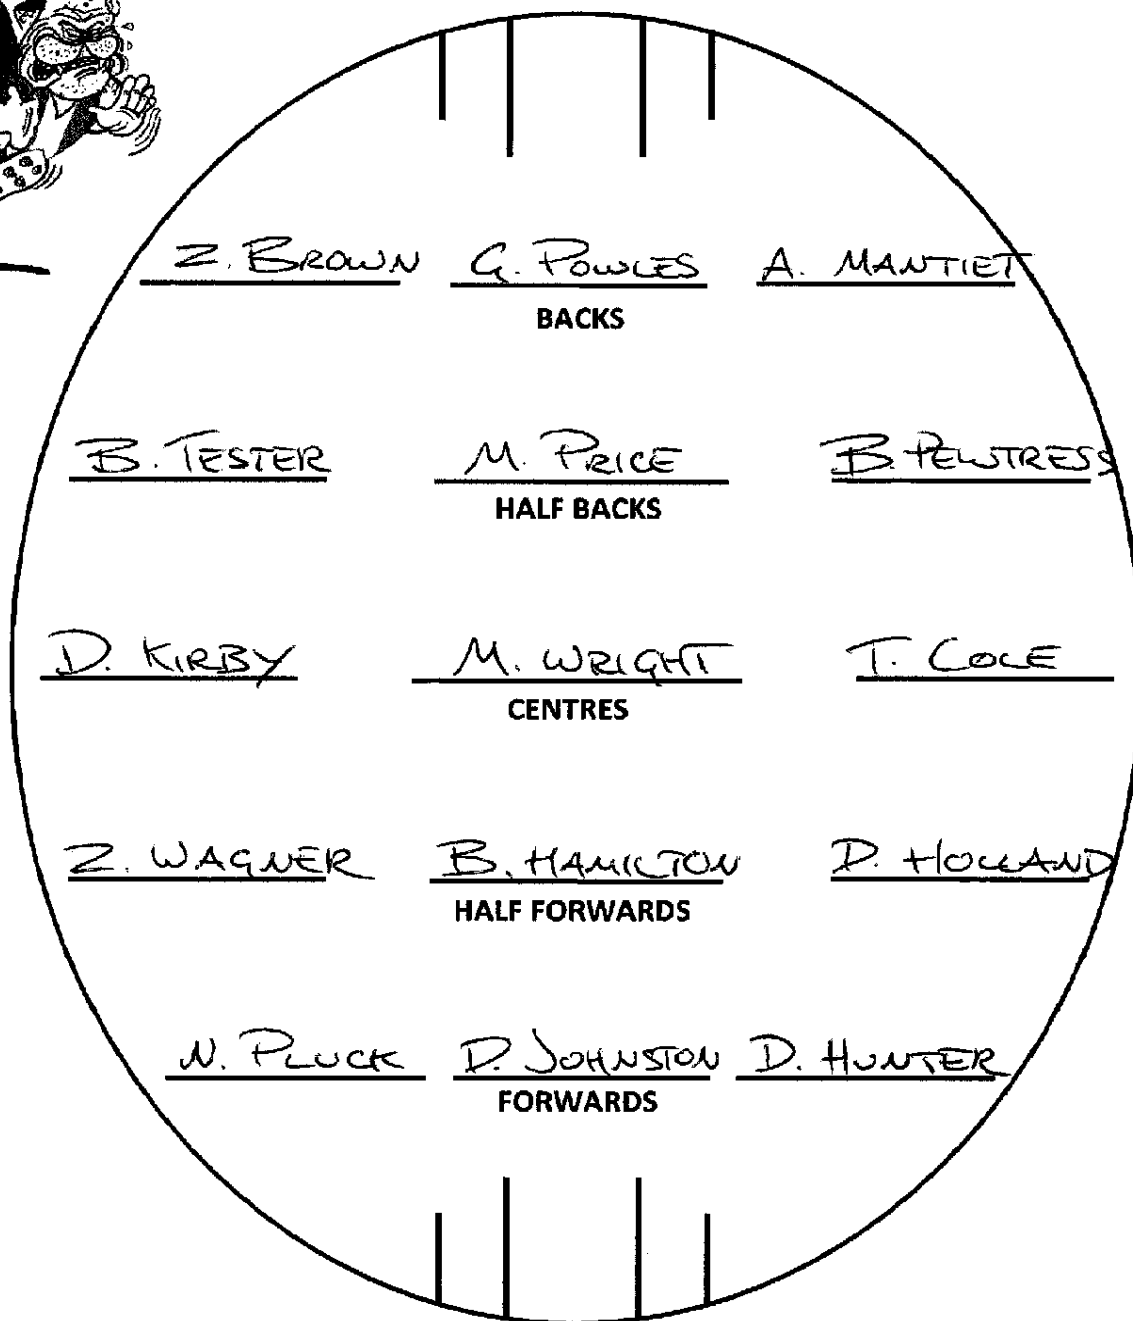 Z. BROWN G. POWLES A. MANTIET
BACKS
B. TESTER M. PRICE B. PEWTRESS
HALF BACKS
D. KIRBY M. WRIGHT T. COLE
CENTRES
Z. WAGNER B. HAMILTON D. HOLLAND
HALF FORWARDS
N. PLUCK D. JOHNSTON D. HUNTER
FORWARDS